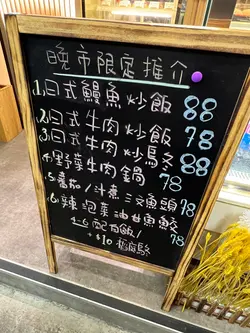 晚市限定推介
1.日式鰻魚炒飯 88
2.日式牛肉炒飯 78
3.日式牛肉炒烏冬 88
4.野菜牛肉鍋 78
5.番茄汁煮三文魚頭 78
6.辣泡菜油甘魚鮫 78
4-6配白飯/
+$10 稻庭